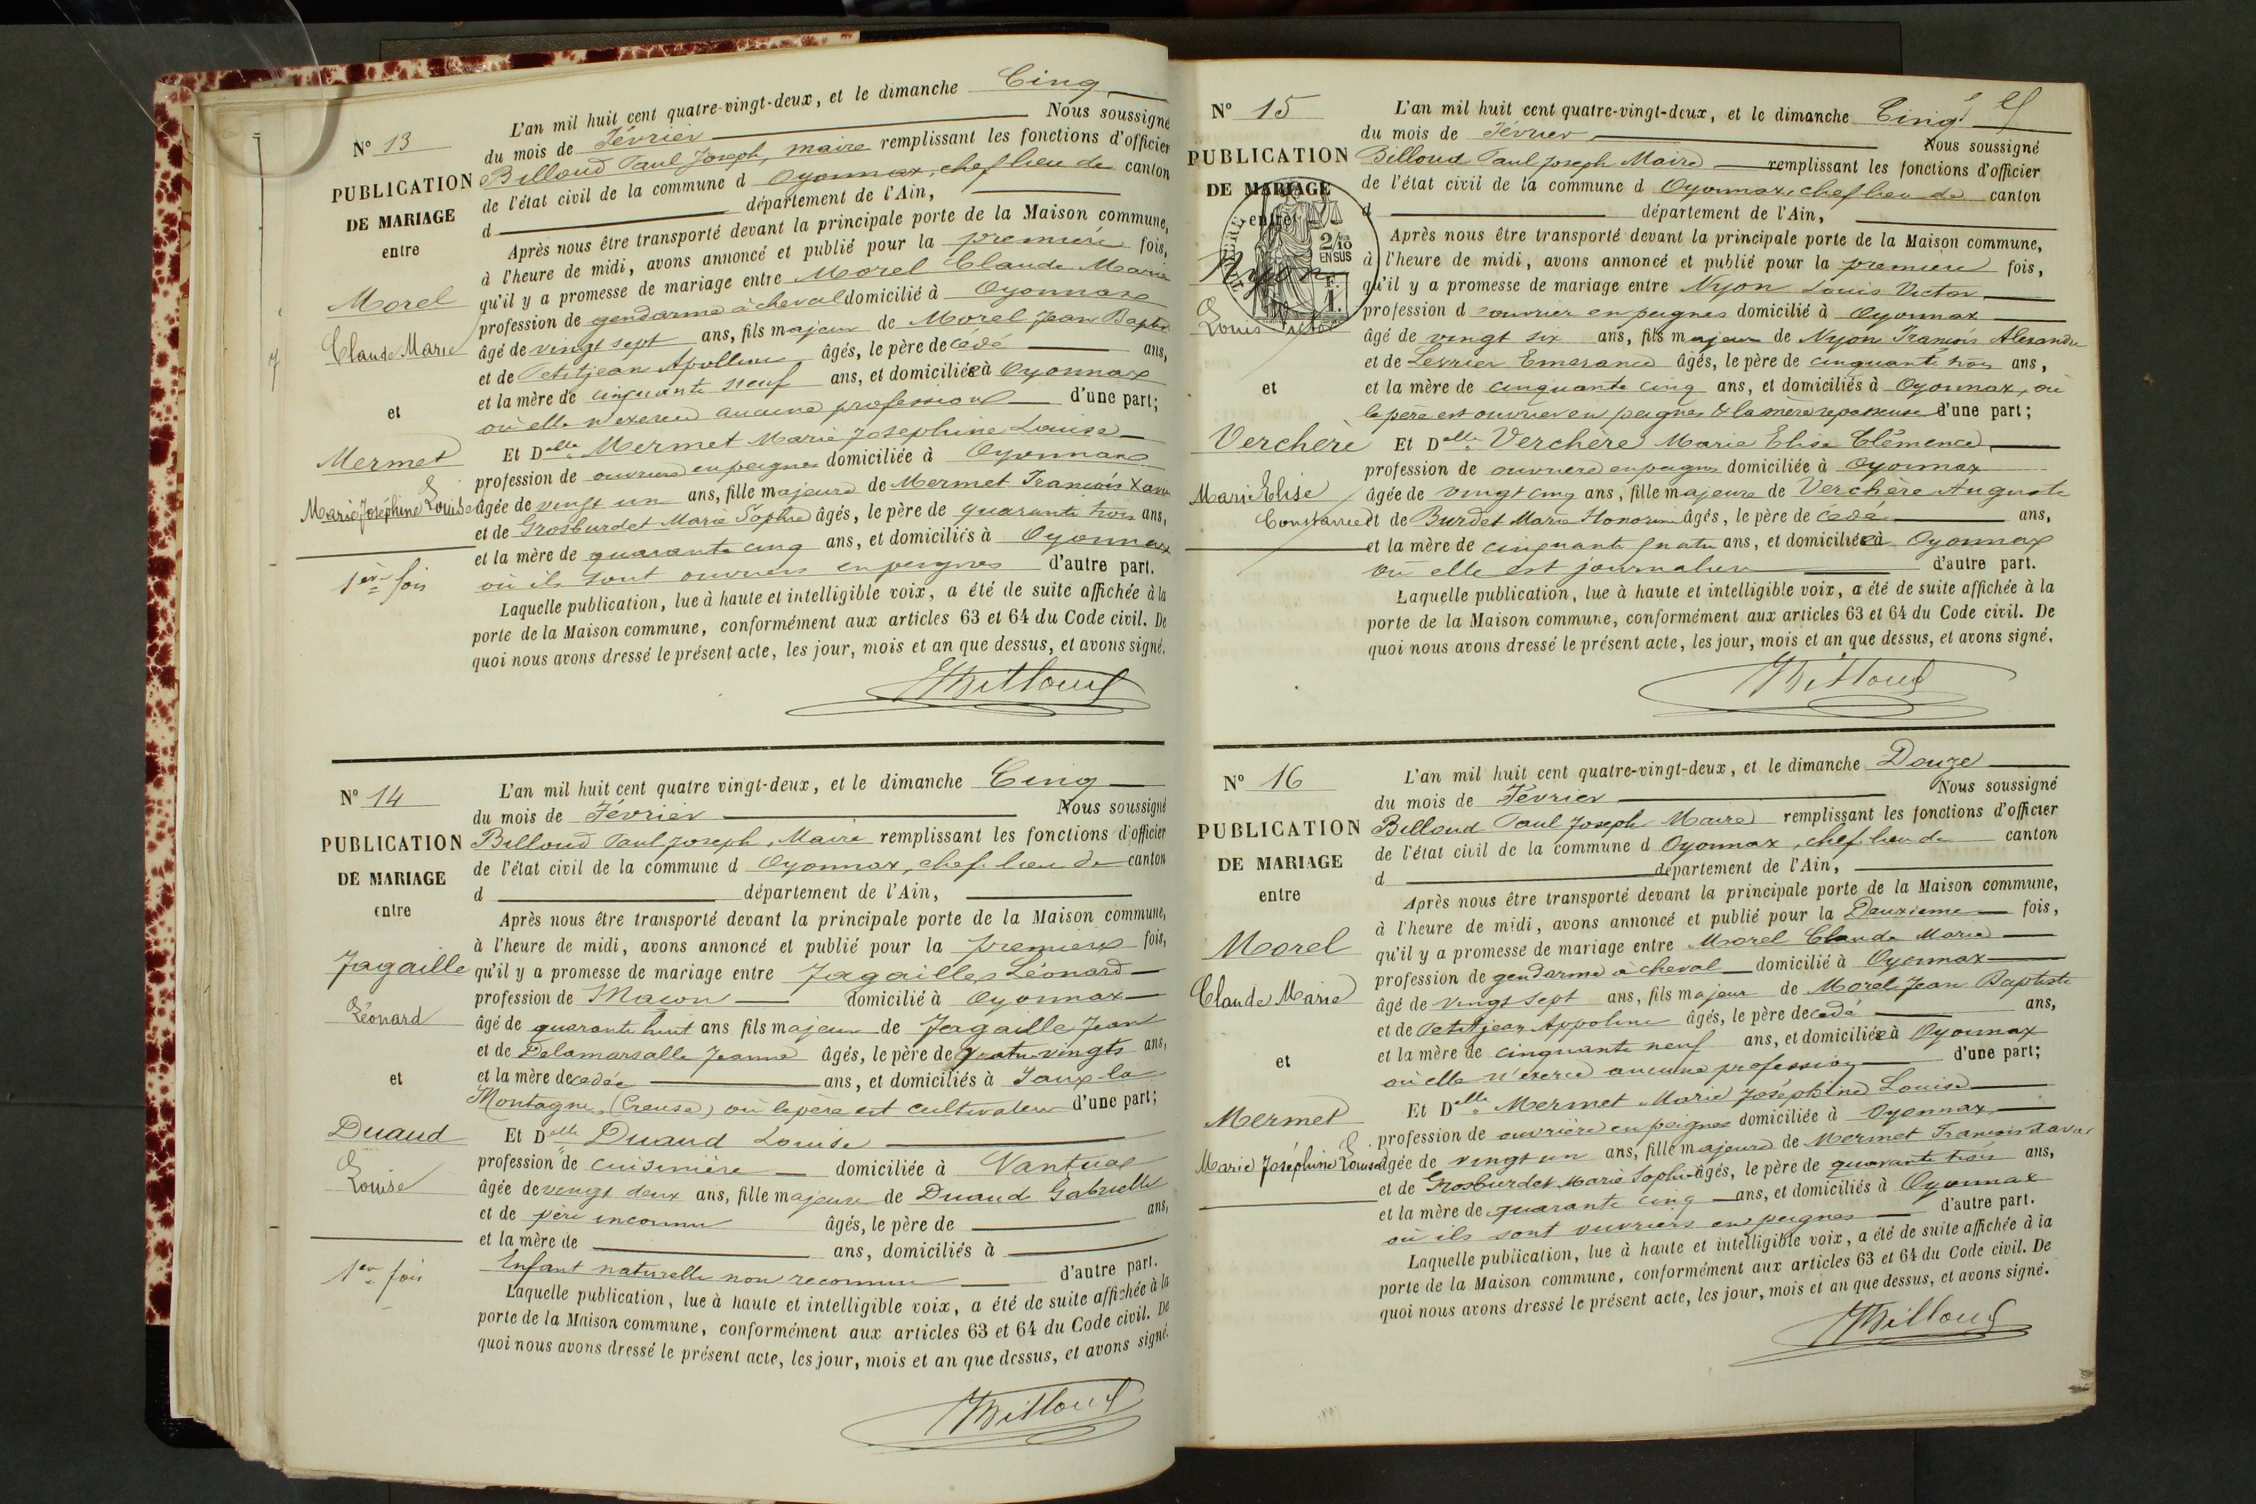 N° 13
PUBLICATION
DE MARIAGE
entre
Morel
Claude Marie
et
Mermet
Marie Joséphine Louise
1ère fois
L'an mil huit cent quatre-vingt-deux, et le dimanche Cinq
du mois de Février Nous soussigné
Billoud Paul Joseph, maire remplissant les fonctions d'officier
de l'état civil de la commune d Oyonnax, chef lieu de canton
d département de l'Ain,
Après nous être transporté devant la principale porte de la Maison commune,
à l'heure de midi, avons annoncé et publié pour la première fois,
qu'il y a promesse de mariage entre Morel Claude Marie
profession de gendarme à cheval domicilié à Oyonnax
âgé de vingt sept ans, fils majeur de Morel Jean Bapte
et de Petitjean Apolline âgés, le père decédé ans,
et la mère de cinquante neuf ans, et domiciliée à Oyonnax
où elle n'exerce aucune profession d'une part;
Et Delle Mermet Marie Josephine Louise
profession de ouvrière en peignes domiciliée à Oyonnax
âgée de vingt un ans, fille majeure de Mermet François Xavier
et de Grosburdet Marie Sophie âgés, le père de quarante trois ans,
et la mère de quarante cinq ans, et domiciliés à Oyonnax
où ils sont ouvriers en peignes d'autre part.
Laquelle publication, lue à haute et intelligible voix, a été de suite affichée à la
porte de la Maison commune, conformément aux articles 63 et 64 du Code civil. De
quoi nous avons dressé le présent acte, les jour, mois et an que dessus, et avons signé.
Billoud
N° 14
PUBLICATION
DE MARIAGE
entre
Jagaille
Léonard
et
Duaud
Louise
1ère fois
L'an mil huit cent quatre vingt-deux, et le dimanche Cinq
du mois de Février Nous soussigné
Billoud Paul Joseph, Maire remplissant les fonctions d'officier
de l'état civil de la commune d Oyonnax, chef lieu de canton
d département de l'Ain,
Après nous être transporté devant la principale porte de la Maison commune,
à l'heure de midi, avons annoncé et publié pour la première fois,
qu'il y a promesse de mariage entre Jagaille, Léonard
profession de Maçon domicilié à Oyonnax
âgé de quarante huit ans fils majeur de Jagaille Jean
et de Delamarsalle Jeanne âgés, le père de quatre-vingts ans,
et la mère decedée ans, et domiciliés à Faux la
Montagne (Creuse) où le père est cultivateur d'une part;
Et Delle Duaud Louise
profession de cuisinière domiciliée à Nantua
âgée de vingt deux ans, fille majeure de Duaud Gabrielle
et de père inconnu âgés, le père de ans,
et la mère de ans, domiciliés à
Enfant naturelle non reconnue d'autre part.
Laquelle publication, lue à haute et intelligible voix, a été de suite affichée à la
porte de la Maison commune, conformément aux articles 63 et 64 du Code civil. De
quoi nous avons dressé le présent acte, les jour, mois et an que dessus, et avons signé.
Billoud
N° 15
PUBLICATION
DE MARIAGE
entre
2/10
EN SUS
F.
1.
Nyon
Louis Victor
et
Verchere
Marie Elise
Constance
L'an mil huit cent quatre-vingt-deux, et le dimanche Cinq
du mois de Février, Nous soussigné
Billoud Paul Joseph Maire remplissant les fonctions d'officier
de l'état civil de la commune d Oyonnax, chef lieu de canton
d département de l'Ain,
Après nous être transporté devant la principale porte de la Maison commune,
à l'heure de midi, avons annoncé et publié pour la première fois,
qu'il y a promesse de mariage entre Nyon Louis Victor
profession d ouvrier en peignes domicilié à Oyonnax
âgé de vingt six ans, fils majeur de Nyon François Alexandre
et de Levrier Emerance âgés, le père de cinquante trois ans,
et la mère de cinquante cinq ans, et domiciliés à Oyonnax, où
le père est ouvrier en peignes & la mère repasseuse d'une part;
Et Delle Verchère Marie Elise Clémence
profession de ouvrière en peignes domiciliée à Oyonnax
âgée de vingt cinq ans, fille majeure de Verchère Auguste
et de Burdet Marie Honorine âgés, le père de cédé ans,
et la mère de cinquante quatre ans, et domiciliée à Oyonnax
où elle est journalière d'autre part.
Laquelle publication, lue à haute et intelligible voix, a été de suite affichée à la
porte de la Maison commune, conformément aux articles 63 et 64 du Code civil. De
quoi nous avons dressé le présent acte, les jour, mois et an que dessus, et avons signé.
Billoud
N° 16
PUBLICATION
DE MARIAGE
entre
Morel
Claude Marie
et
Mermet
Marie Joséphine Louise
L'an mil huit cent quatre-vingt-deux, et le dimanche Douze
du mois de Février Nous soussigné
Billoud Paul Joseph Maire remplissant les fonctions d'officier
de l'état civil de la commune d Oyonnax, chef lieu de canton
d département de l'Ain,
Après nous être transporté devant la principale porte de la Maison commune,
à l'heure de midi, avons annoncé et publié pour la Deuxieme fois,
qu'il y a promesse de mariage entre Morel Claude Marie
profession de gendarme à cheval domicilié à Oyonnax
âgé de vingt sept ans, fils majeur de Morel Jean Baptiste
et de Petitjean Appoline âgés, le père decedé ans,
et la mère de cinquante neuf ans, et domiciliée à Oyonnax
où elle n'exerce aucune profession d'une part;
Et Delle Mermet Marie Joséphine Louise
profession de ouvrière en peignes domiciliée à Oyonnax
âgée de vingt un ans, fille majeure de Mermet François Xavier
et de Grosburdet Marie Sophie âgés, le père de quarante trois ans,
et la mère de quarante cinq ans, et domiciliés à Oyonnax
où ils sont ouvriers en peignes d'autre part.
Laquelle publication, lue à haute et intelligible voix, a été de suite affichée à la
porte de la Maison commune, conformément aux articles 63 et 64 du Code civil. De
quoi nous avons dressé le présent acte, les jour, mois et an que dessus, et avons signé.
Billoud